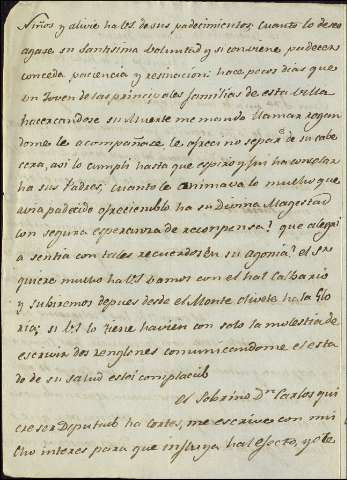 Niños y alivie ha les de sus padecimientos, cuanto lo deseo
agase su santisima voluntad y si conviene padecer
conceda paciencia y resinacion: hace pocos dias que
un Joven de las principales familias de esta villa
hacercandose su muerte me mando llamar rogan
dome le acompañase, le ofreci no separ.e de su cabe
sera, asi lo cumpli hasta que espiro y fui ha consolar
ha sus Padres, cuanto le animava lo mucho que
avia padecido ofreciendolo ha su Divina Magestad
con segura esperanza de reconpensa! que alegri
a sentia con tales recuerdos en su agonia! el Sr
quiere mucho ha les vamos con el hal Calbario
y subiremos depues desde el Monte olivete ha la Glo
ria; si les lo tiene ha vien con solo la molestia de
escrivir dos renglones comunicandome el esta
do de su salud estoi complacido
el Sobrino Dn Carlos qui
ere ser Diputado ha cortes, me escrive con mu
cho interes para que influya hal efecto, y ele